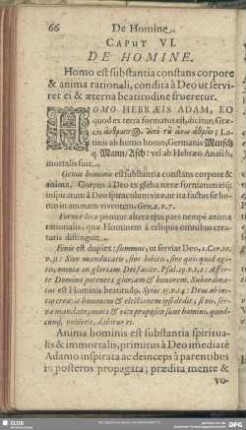 66 De Homine.
CAPUT VI.
DE HOMINE.
Homo est substantia constans corpore
& anima rationali, condita à Deo ut servi-
ret ei & æterna beatitudine frueretur.
HOMO HEBRÆIS ADAM, EO
quod ex terra formatus est, dicitur, Græ-
cis
tinis ab humo homo, Germanis Mensch
q. Mann/Isch: vel ab Hebræo Anosch,
mortalis fuit.
Genus hominis est substantia constans corpore &
anima. Corpus à Deo ex gleba terræ formatum eiq;
inspiratum à Deo spiraculum vitæ ut ita factus sit ho-
mo in animam viventem. Gen. 2. v. 7.
Formæ loco ponitur altera ejus pars nempe anima
rationalis, quæ Hominem à reliquis omnibus crea-
turis distinguit.
Finis est duplex: summus, ut serviat Deo, 1. Cor. 10.
v. 31: Sive manducatis, sive bibitis, sive quid quid agi-
tis, omnia in gloriam Dei facite. Psal. 29. v. 1, 2: Affer-
te Domino potentes gloriam & honorem. Subordina-
tus est Hominis beatitudo, Syrac. 15. v. 14: Deus ab ini-
tio creavit hominem &
cunq; voluerit, dabitur ei.
Anima hominis est substantia spiritua-
lis & immortalis, primitus à Deo imediatè
Adamo inspirata ac deinceps à parentibus
in posteros propagata; prædita mente &
vo-
SLUB